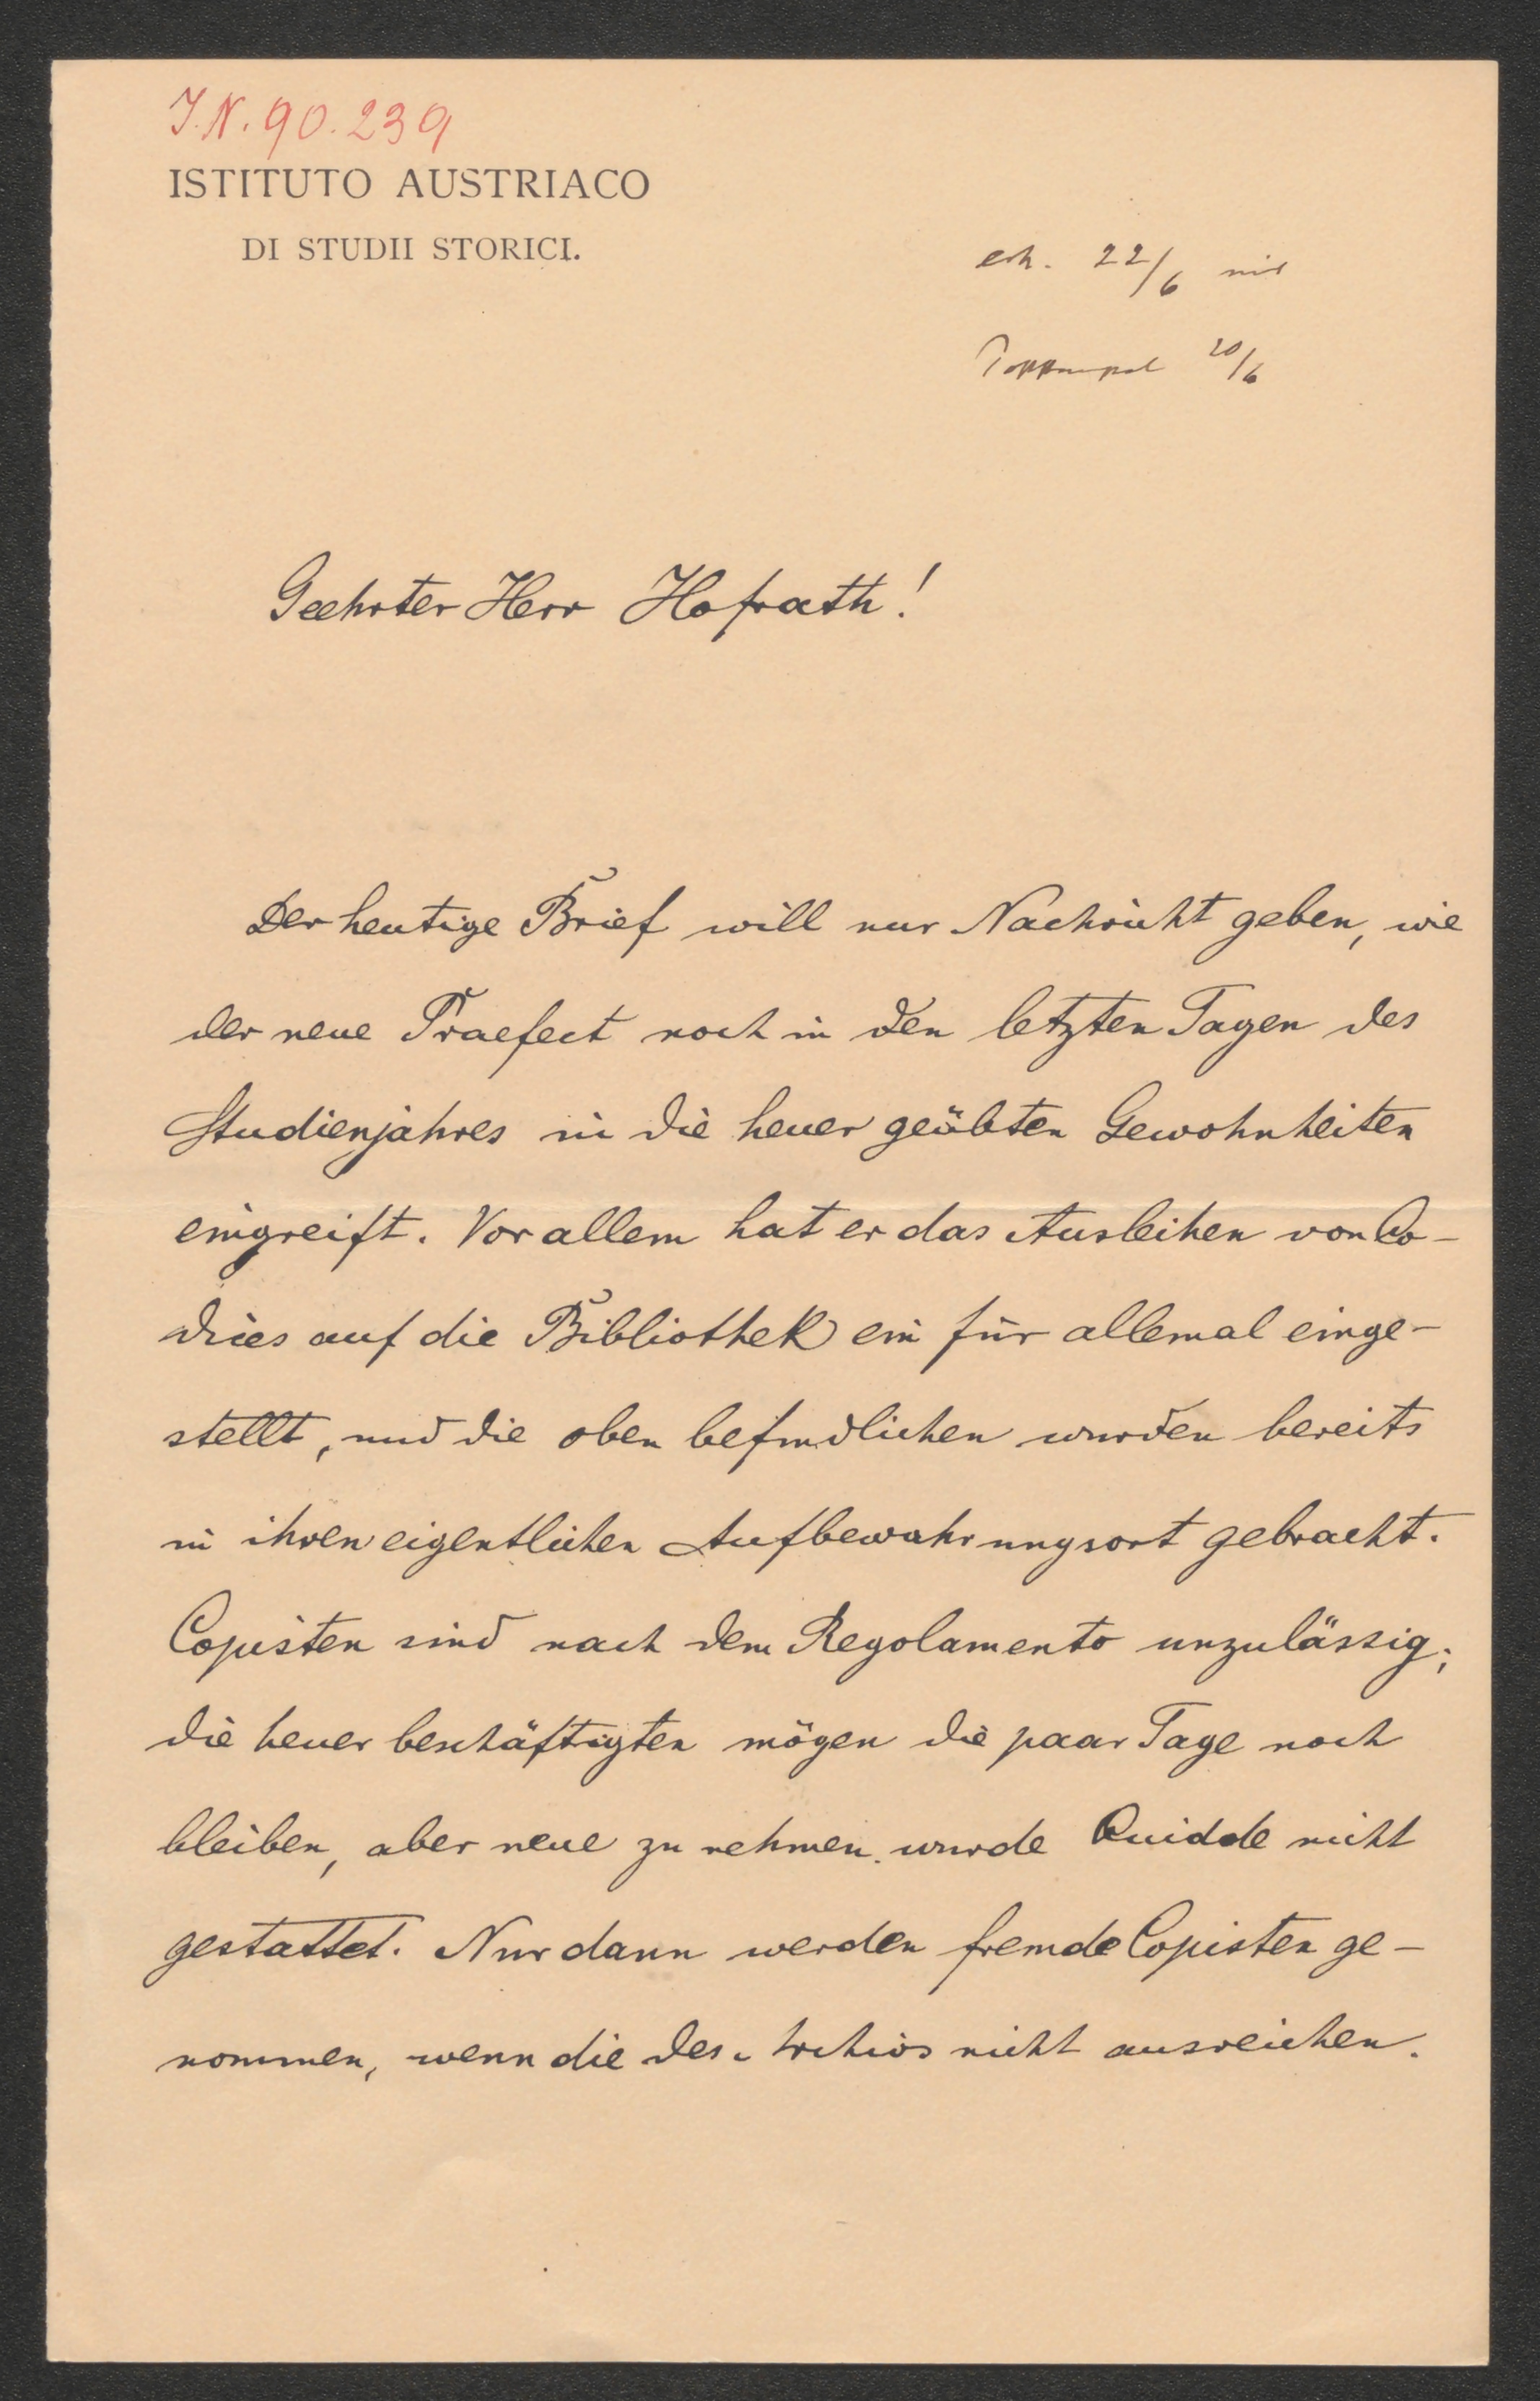 J.N. 90.239
ISTITUTO AUSTRIACO
DI STUDII STORICI.
erh. 22/6 mit
Poststempel 20/6
Geehrter Herr Hofrath!
Der heutige Brief will nur Nachricht geben, wie
der neue Praefect noch in den letzten Tagen des
Studienjahres in die heuer geübten Gewohnheiten
eingreift. Vor allem hat er das Ausleihen von Co-
dices auf die Bibliothek ein für allemal einge-
stellt, und die oben befindlichen wurden bereits
in ihren eigentlichen Aufbewahrungsort gebracht.
Copisten sind nach dem Regolamento unzulässig;
die heuer beschäftigten mögen die paar Tage noch
bleiben, aber neue zu nehmen wurde Quidde nicht
gestattet. Nur dann werden fremde Copisten ge-
nommen, wenn die des Archivs nicht ausreichen.